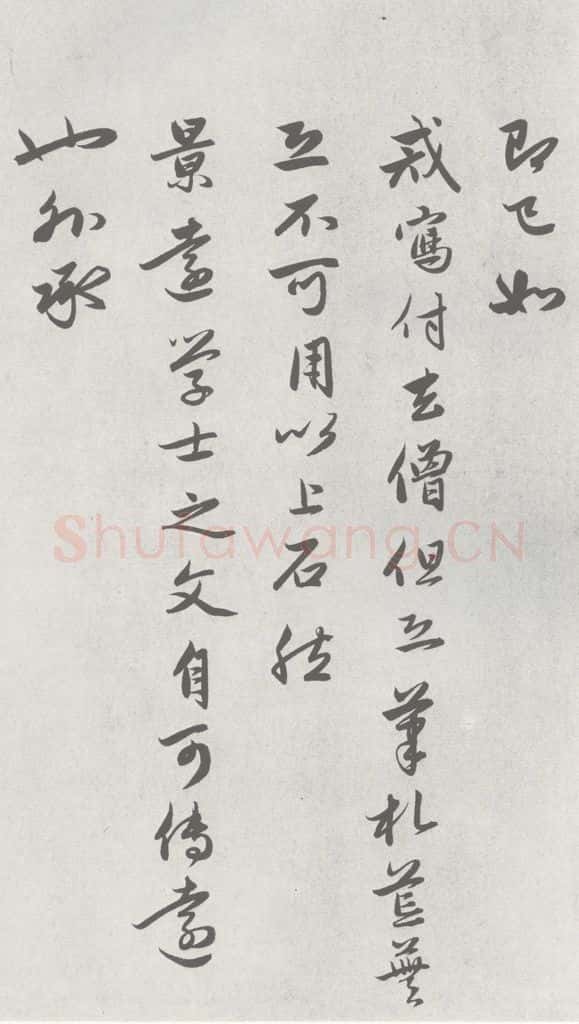 即已如
戒寫付去僧但恐筆札荒蕪
恐不可用以上石然
景遠学士之文自可傳遠
也外承
Shufawang.CN